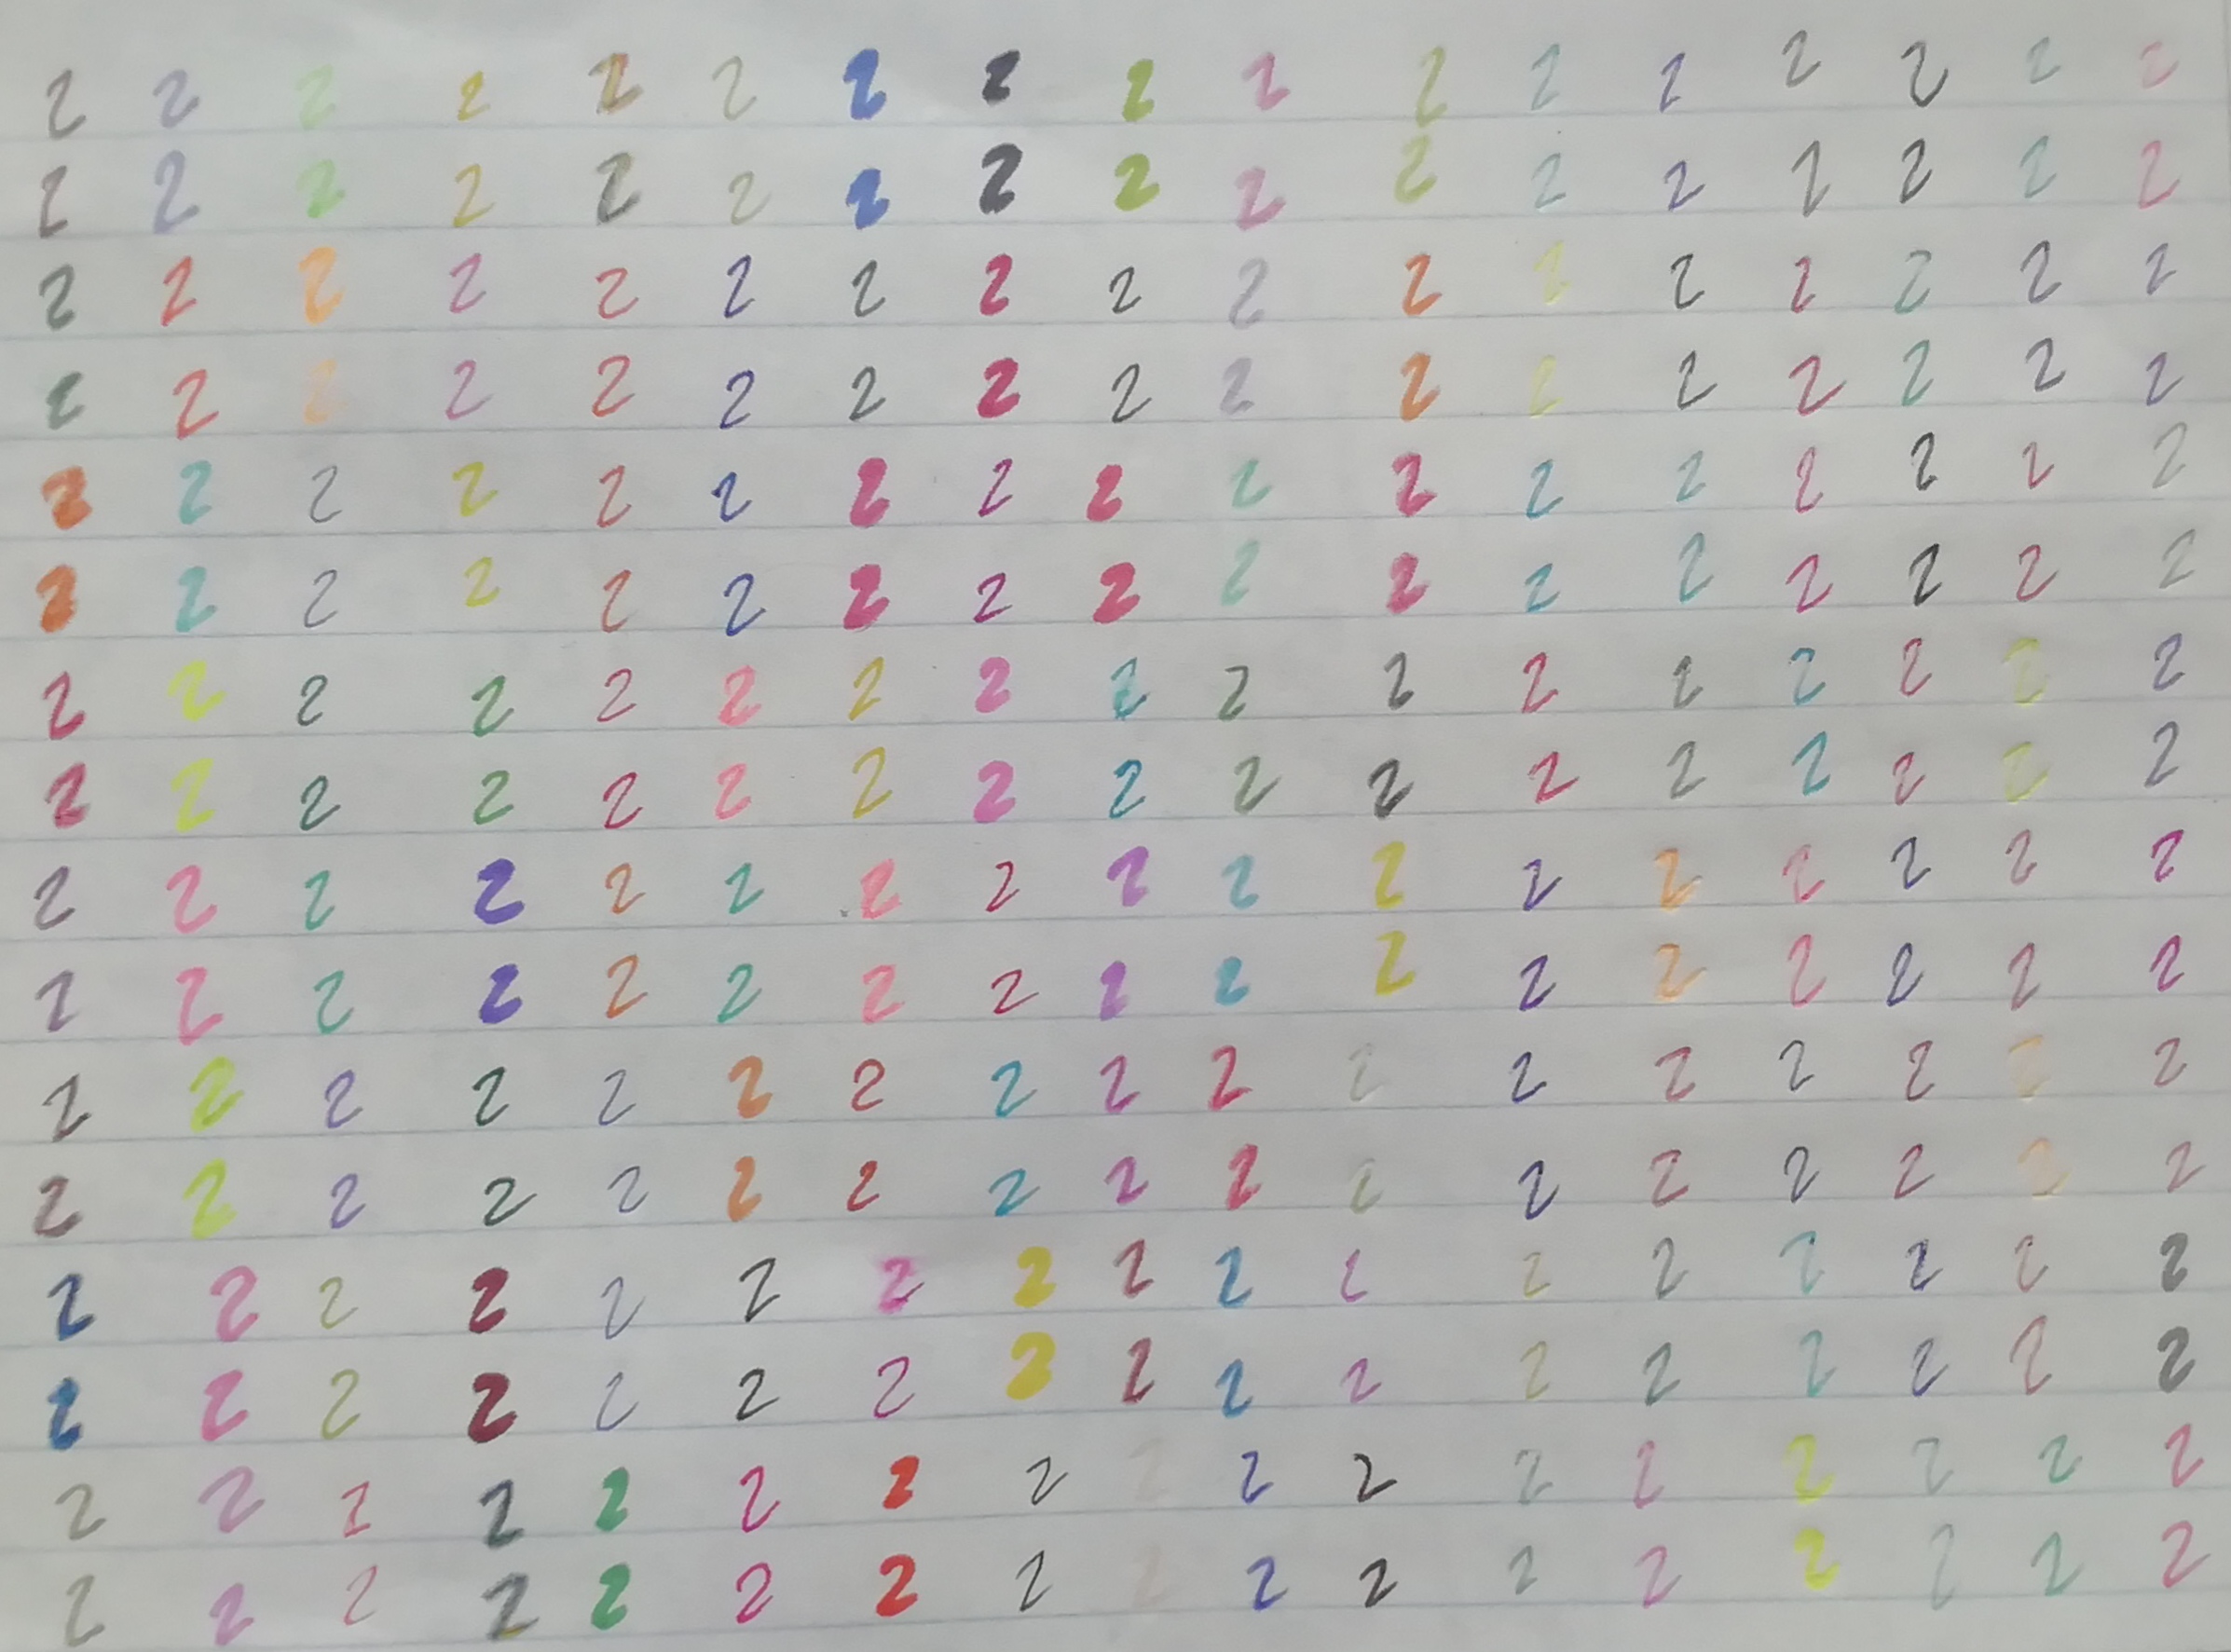 2 2 2 2 2 2 2 2 2 2 2 2 2 2 2 2 2
2 2 2 2 2 2 2 2 2 2 2 2 2 2 2 2 2
2 2 2 2 2 2 2 2 2 2 2 2 2 2 2 2 2
2 2 2 2 2 2 2 2 2 2 2 2 2 2 2 2 2
2 2 2 2 2 2 2 2 2 2 2 2 2 2 2 2 2
2 2 2 2 2 2 2 2 2 2 2 2 2 2 2 2 2
2 2 2 2 2 2 2 2 2 2 2 2 2 2 2 2 2
2 2 2 2 2 2 2 2 2 2 2 2 2 2 2 2 2
2 2 2 2 2 2 2 2 2 2 2 2 2 2 2 2 2
2 2 2 2 2 2 2 2 2 2 2 2 2 2 2 2 2
2 2 2 2 2 2 2 2 2 2 2 2 2 2 2 2 2
2 2 2 2 2 2 2 2 2 2 2 2 2 2 2 2 2
2 2 2 2 2 2 2 2 2 2 2 2 2 2 2 2 2
2 2 2 2 2 2 2 2 2 2 2 2 2 2 2 2 2
2 2 2 2 2 2 2 2 2 2 2 2 2 2 2 2 2
2 2 2 2 2 2 2 2 2 2 2 2 2 2 2 2 2